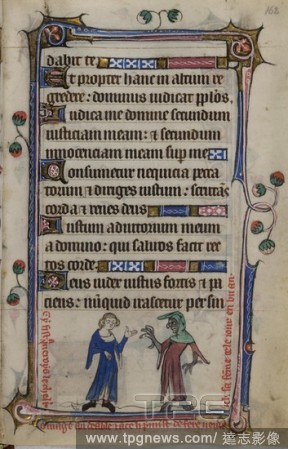 162
dabit te
Et propter hanc in altum re
gredere: dominus iudicat pplōs.
Iudica me domine secundum
iusticiam meam: & secundum
innocenciam meam sup me
Consumetur nequicia pecca
torum & diriges iustum: scrutās
corda & renes deus
Iustum adiutorium meum
a domino: qui saluos facit rec
tos corde.
Deus iudex iustus fortis & pa
ciens: nūquid irascetur per sin
TPG
www.tpgnews.com | 達志影像